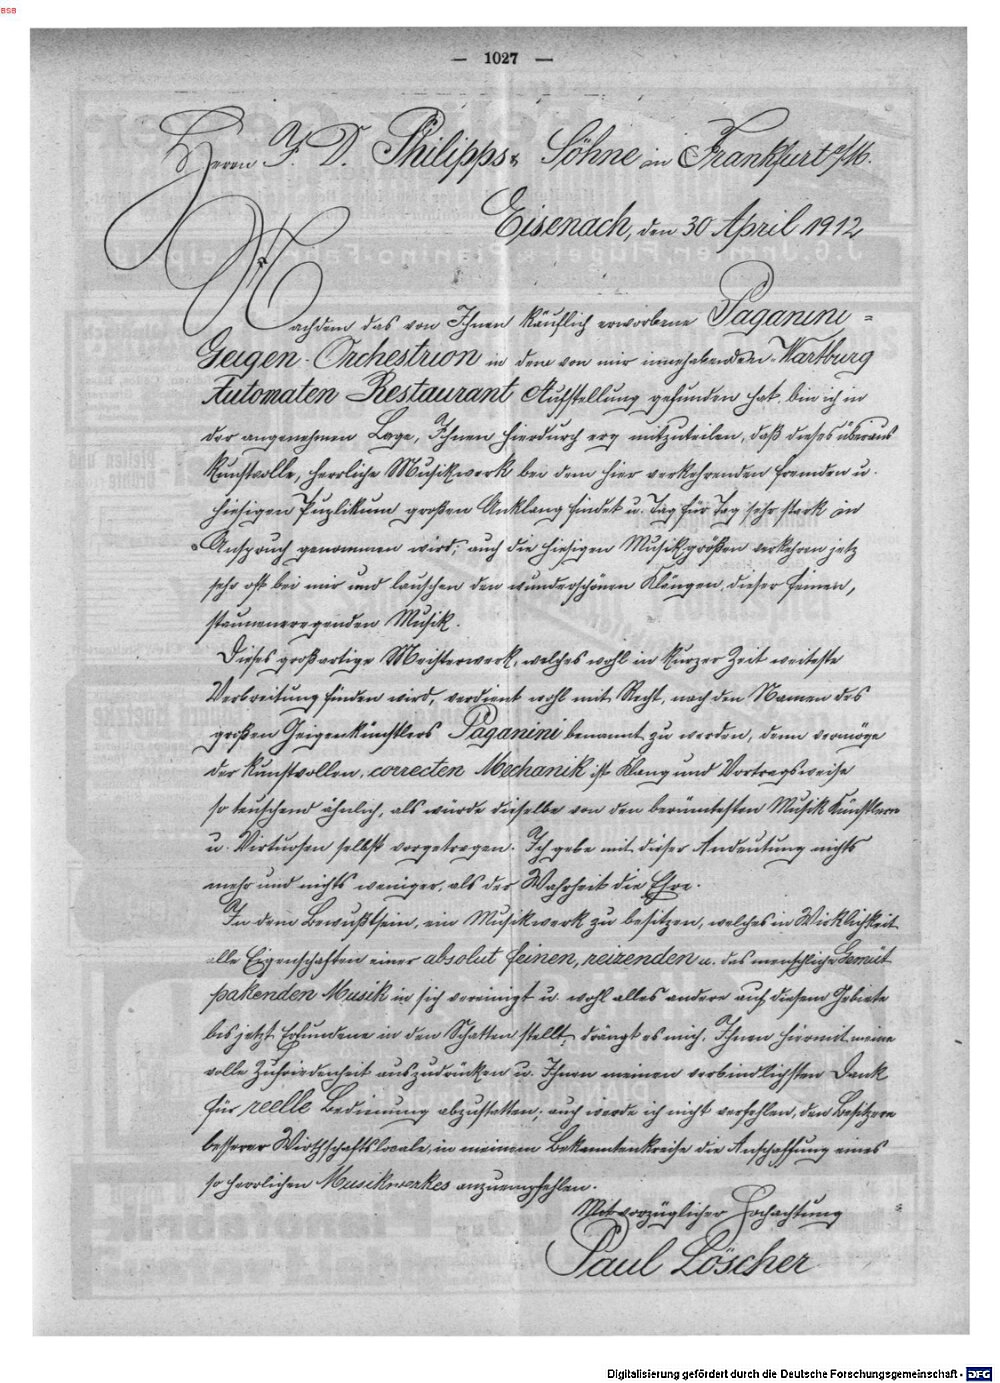 BSB
— 1027 —
Herrn J. D. Philipps & Söhne in Frankfurt a/M.
Eisenach, den 30 April 1912
Nachdem das von Ihnen käuflich erworbene Paganini =
Geigen-Orchestrion in dem von mir innehabenden Wartburg
Automaten Restaurant Aufstellung gefunden hat, bin ich in
der angenehmen Lage, Ihnen hierdurch erg. mitzuteilen, daß dieses überaus
kunstvolle, herrliche Musikwerk bei dem hier verkehrenden fremden u.
hiesigen Puplikum großen Anklang findet u. Tag für Tag sehr stark in
Anspruch genommen wird; auch die hiesigen Musikgrößen verkehren jetz
sehr oft bei mir und lauschen den wunderschönen Klängen dieser feinen,
staunenerregenden Musik.
Dieses großartige Meisterwerk, welches wohl in kurzer Zeit weiteste
Verbreitung finden wird, verdient wohl mit Recht, nach dem Namen des
großen Geigenkünstlers Paganini benannt zu werden, denn vermöge
der kunstvollen, correcten Mechanik ist Klang und Vortragsweise
so teuschend ähnlich, als würde dieselbe von den berümtesten Musik Künstlern
u. Virtuosen selbst vorgetragen. Ich gebe mit dieser Andeutung nichts
mehr und nichts weniger, als der Wahrheit die Ehre.
In dem Bewußtsein, ein Musikwerk zu besitzen, welches in Wirklichkeit
alle Eigenschaften einer absolut feinen, reizenden u. das menschliche Gemüt
pakenden Musik in sich vereinigt u. wohl alles andere auf diesem Gebiete
bis jetzt Erfundene in den Schatten stellt, drängt es mich, Ihnen hiermit meine
volle Zufriedenheit auszudrücken u. Ihnen meinen verbindlichsten Dank
für reelle Bedienung abzustatten; auch werde ich nicht verfehlen, den Besitzern
besserer Wirthschaftslocale, in meinem Bekanntenkreise die Anschaffung eines
so herrlichen Musikwerkes anzuempfehlen.
Mit vorzüglicher Hochachtung
Paul Löscher
Digitalisierung gefördert durch die Deutsche Forschungsgemeinschaft - DFG